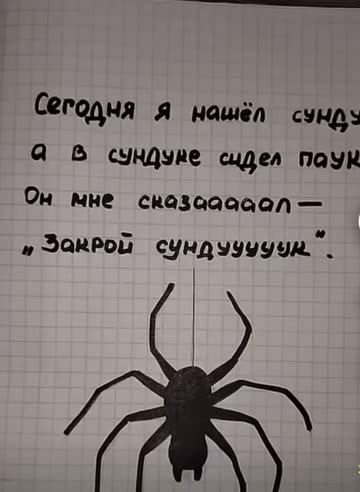 Сегодня я нашёл сунду
а в сундуке сидел паук
Он мне сказааааал —
„Закрой сундуууууук“.